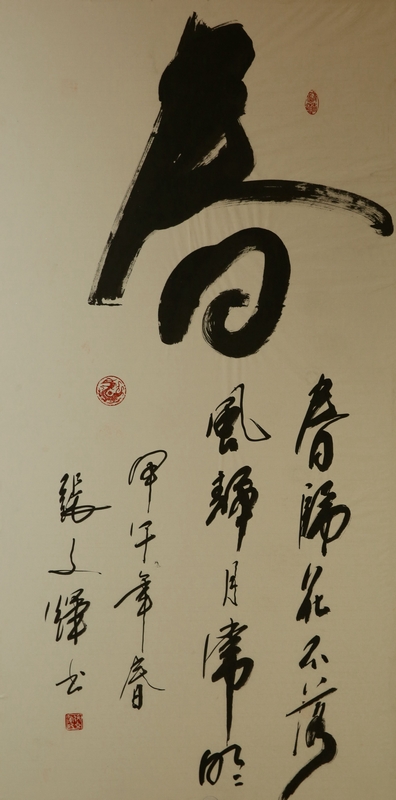 春
春歸花不落
風靜月常明
甲午年春
張文輝书